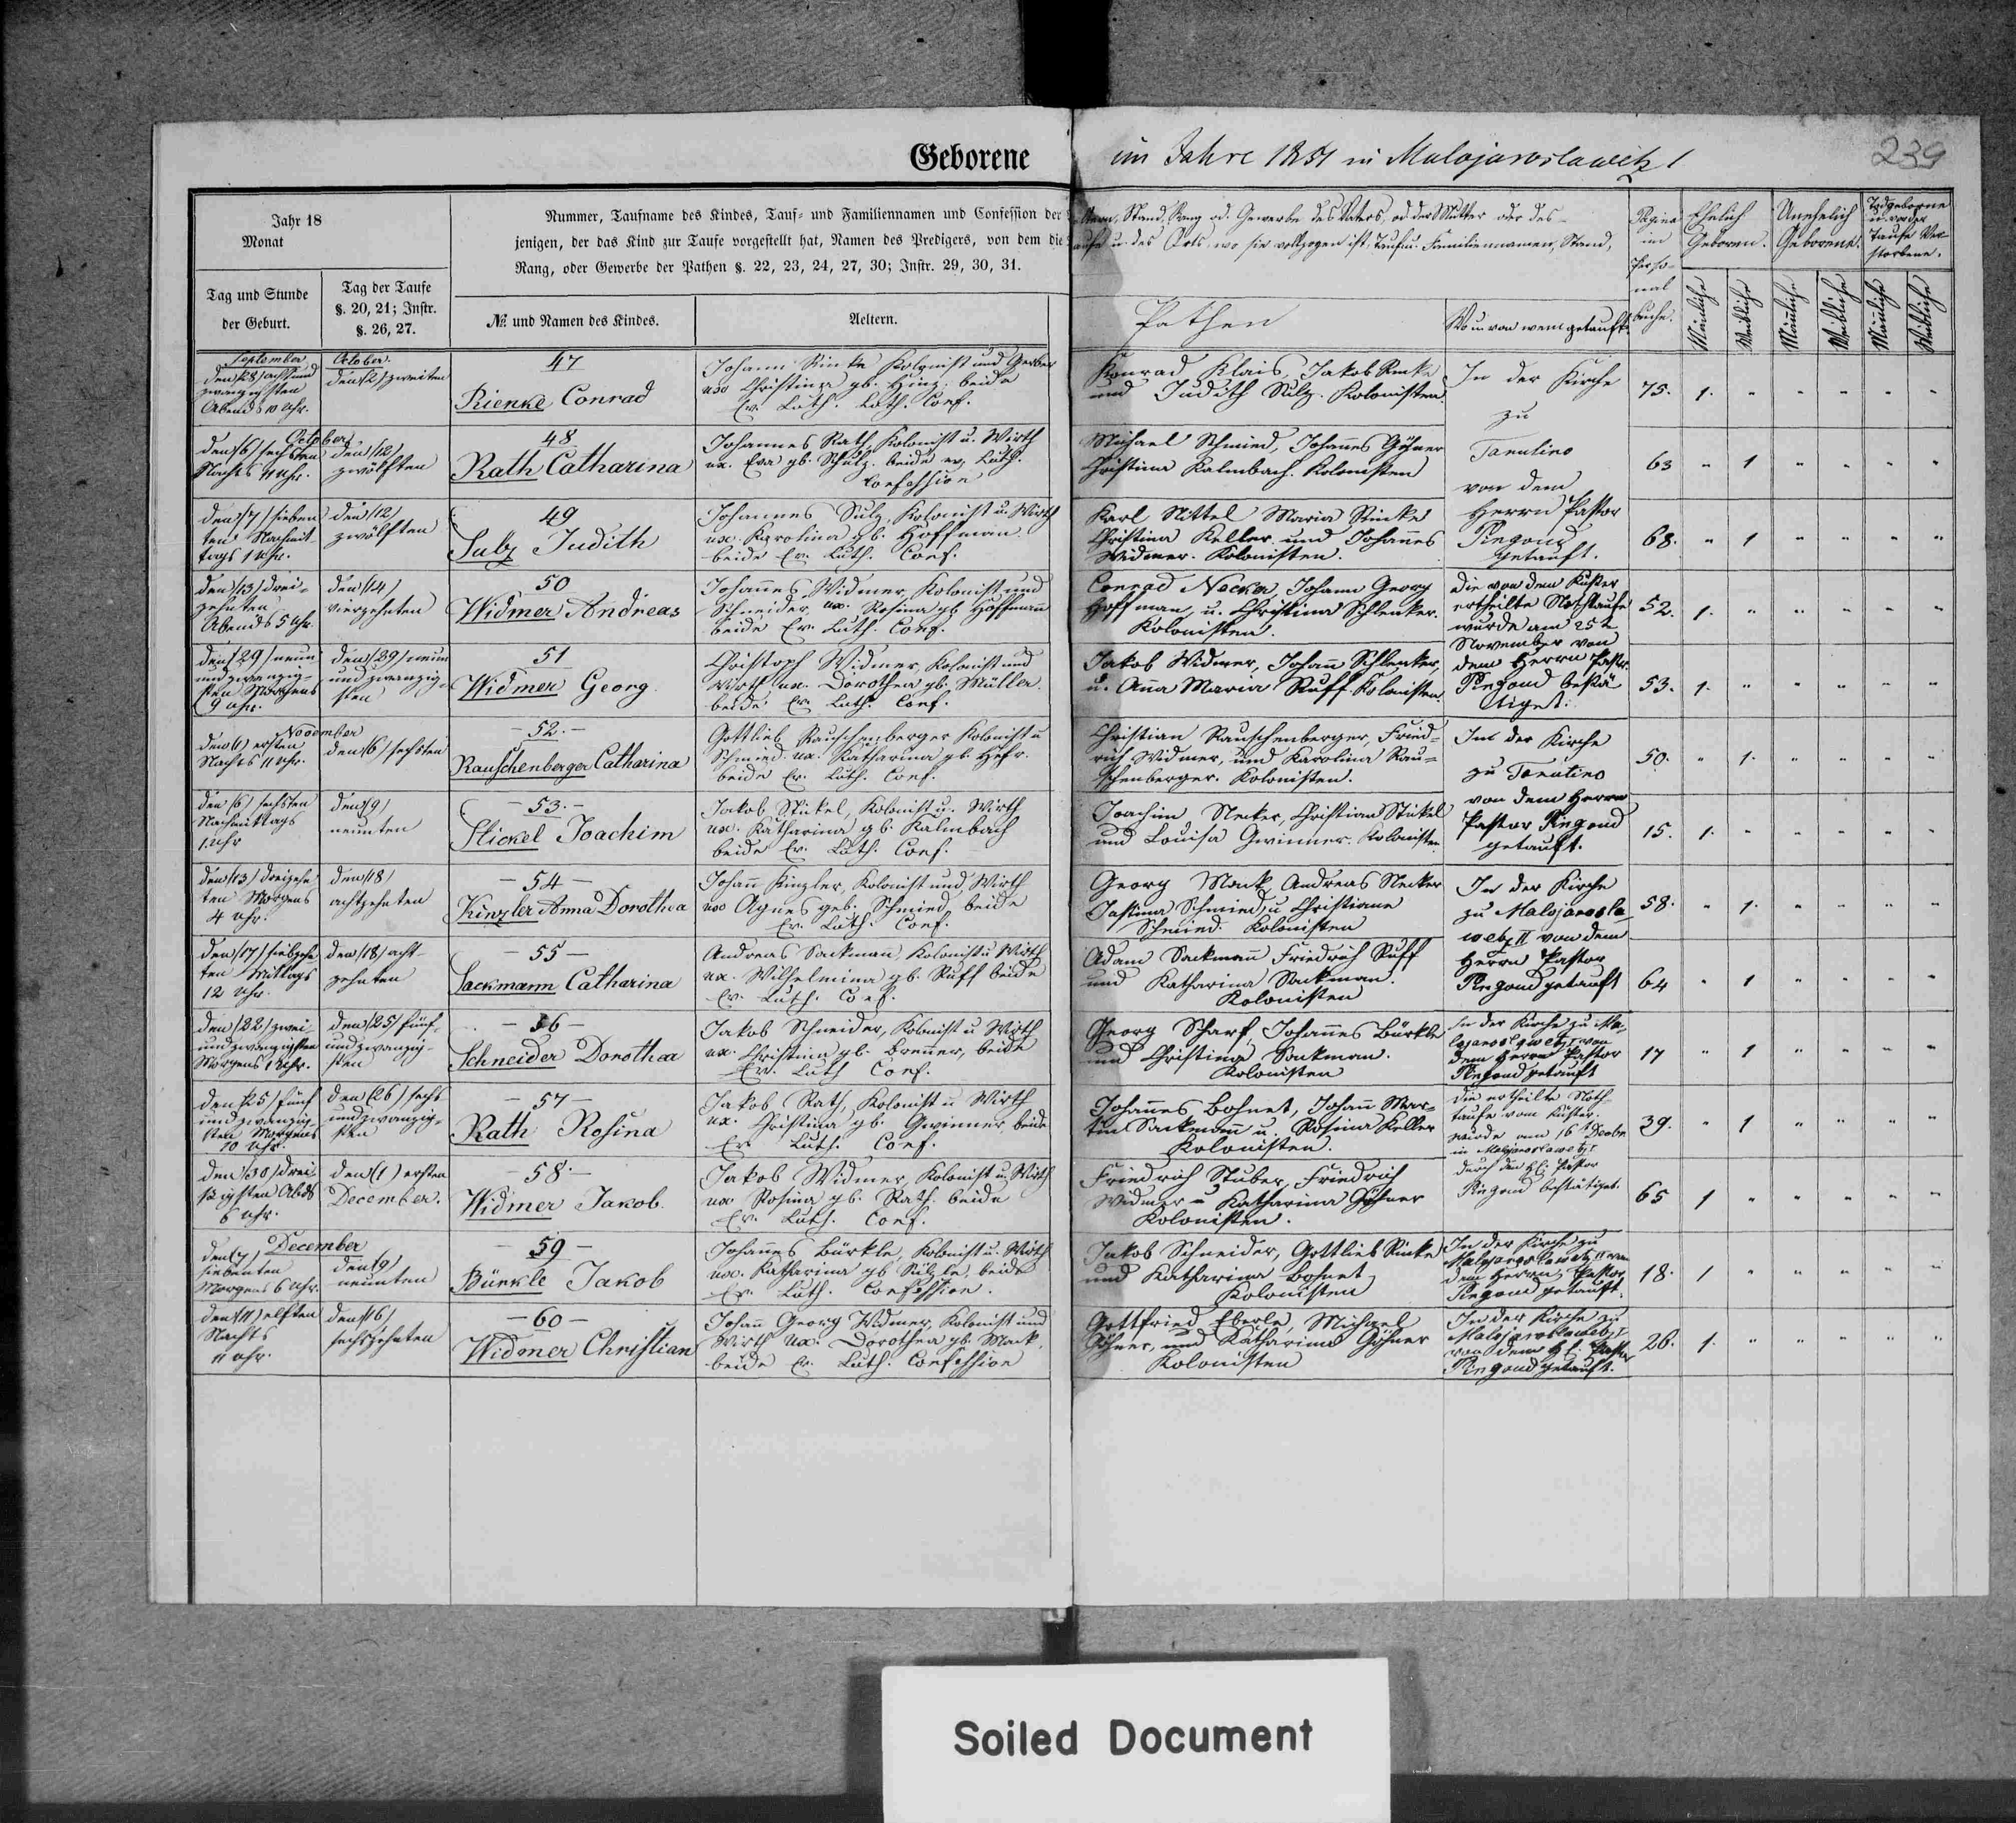 Geborene im Jahre 1851 in Malojaroslawetz 1
239
Jahr 18
Monat
Tag und Stunde
der Geburt.
Tag der Taufe
§. 20, 21; Instr.
§. 26, 27.
Nummer, Taufname des Kindes, Tauf- und Familiennamen und Confession der
jenigen, der das Kind zur Taufe vorgestellt hat, Namen des Predigers, von dem die
Rang, oder Gewerbe der Pathen §. 22, 23, 24, 27, 30; Instr. 29, 30, 31.
№ und Namen des Kindes.
Aeltern.
Stand, Rang od. Gewerbe des Vaters, od. der Mutter oder des-
u. des Orts, wo sie vollzogen ist, Tauf u. Familiennamen, Stand,
Pathen
Wo u. von wem getauft.
Pagina
im
Perso-
nal
buche.
Ehelich
Geboren.
Unehelich
Geborene.
Todgeborne
u. vor der
Taufe Ver-
storbene.
Mänliche
Weibliche
Mänliche
Weibliche
Mänliche
Weibliche
September
den (28) acht und
zwanzigsten
Abends 10 Uhr.
October.
den (2) zweiten
47
Rienke Conrad
Johann Rinke Kolonist und Gerber
uxo Christina gb. Hinz. beide
Ev. Luth. Luth. Conf.
Konrad Klais, Jakob Rinke
und Judith Sulz. Kolonisten.
In der Kirche
zu
Tarutino
von dem
Herrn Pastor
Pingoud
getauft.
75. 1. " " " " "
October
den (6) sechsten
Nachts 11 Uhr.
den (12)
zwölften
48
Rath Catharina
Johannes Rath, Kolonist u. Wirth
ux. Eva gb. Schulz. beide ev. Luth.
Confession
Michael Schmied, Johannes Göhner
Christina Kalmbach. Kolonisten
63 " 1 " " " "
den (7) sieben
ten Nachmit-
tags 1 Uhr.
den (12)
zwölften
49
Sulz Judith
Johannes Sulz, Kolonist u. Wirth
ux. Karolina gb. Hoffman
beide Ev. Luth. Conf.
Karl Nittel Maria Rinke
Christina Keller und Johannes
Widmer. Kolonisten.
68. " 1 " " " "
den (13) drei-
zehnten
Abends 5 Uhr.
den (14)
vierzehnten
50
Widmer Andreas
Johannes Widmer, Kolonist und
Schneider, ux. Rosina gb. Hoffmann
beide Ev. Luth. Conf.
Conrad Necker, Johann Georg
Hoffman, u. Christina Schlenker.
Kolonisten.
die von dem Küster
ertheilte Nothtaufe
wurde am 25 t
November von
dem Herrn Pastor
Pingoud bestä-
tiget.
52. 1. " " " " "
den (29) neun
und zwanzig-
sten Morgens
9 Uhr.
den (29) neun
und zwanzig-
sten
51
Widmer Georg
Christoph Widmer, Kolonist und
Wirth ux. Dorothea gb. Müller.
beide Ev. Luth. Conf.
Jakob Widmer, Johann Schlenker,
u. Anna Maria Ruff. Kolonisten.
53. 1. " " " " "
November
den (1) ersten
Nachts 11 Uhr.
den (6) sechsten
-52.-
Rauschenberger Catharina
Gottlieb Rauschenberger Kolonist u
Schmied ux. Katharina gb. Hehr.
beide Ev. Luth. Conf.
Christian Rauschenberger, Fried-
rich Widmer, und Karolina Rau-
schenberger. Kolonisten.
In der Kirche
zu Tarutino
von dem Herrn
Pastor Pingoud
getauft.
50. " 1. " " " "
den (6) sechsten
Nachmittags
1 Uhr
den (9)
neunten
-53.-
Stickel Joachim
Jakob Stickel, Kolonist u. Wirth
ux. Katharina gb. Kalmbach
beide Ev. Luth. Conf.
Joachim Necker, Christian Stickel
und Louisa Gwinner. Kolonisten
15. 1. " " " " "
den (13) dreizehn
ten Morgens
4 Uhr.
den (18)
achtzehnten
-54-
Kinzler Anna Dorothea
Johann Kinzler, Kolonist und Wirth
uxo Agnes geb. Schmied beide
Ev. Luth. Conf.
Georg Mack Andreas Necker
Justina Schmied u Christiane
Schmied. Kolonisten
In der Kirche
zu Malojarosla
wetz II von dem
Herrn Pastor
Pingoud getauft
58. " 1. " " " "
den (17) siebzehn
ten Mittags
12 Uhr.
den (18) acht-
zehnten
-55-
Sackmann Catharina
Andreas Sackmann, Kolonist u Wirth
ux. Wilhelmina gb. Ruff beide
Ev. Luth. Conf.
Adam Sackmann Friedrich Ruff
und Katharina Sackman.
Kolonisten
64 " 1 " " " "
den (22) zwei
und zwanzigsten
Morgens 1 Uhr.
den (25) fünf-
und zwanzig-
sten
-56-
Schneider Dorothea
Jakob Schneider, Kolonist u Wirth
ux. Christina gb. Brenner, beide
Ev. Luth Conf.
Georg Scharf, Johannes Bürkle
und Christina Sackman.
Kolonisten
In der Kirche zu Ma-
lojaroslawetz I von
dem Herrn Pastor
Pingoud getauft
17 " 1 " " " "
den (25) fünf
und zwanzig-
sten Morgens
10 Uhr.
den (26) sechs
und zwanzig-
sten
-57-
Rath Rosina
Jakob Rath, Kolonist u Wirth
ux. Christina gb. Gwinner, beide
Ev. Luth. Conf.
Johannes Bohnet, Johann Mar-
tin Sackmann u. Rosina Keller
Kolonisten.
die ertheilte Noth-
taufe vom Küster.
wurde am 16 t Decbr
in Malojaroslawetz I
durch den H. Pastor
Pingoud bestätiget.
39. " 1 " " " "
den (30) drei-
ßigsten Abds
6 Uhr.
den (1) ersten
December.
-58.-
Widmer Jakob.
Jakob Widmer, Kolonist u. Wirth
ux Rosina gb. Rath. beide
Ev. Luth. Conf.
Friedrich Stuber, Friedrich
Widmer u Katharina Göhner
Kolonisten.
65 1 " " " " "
December
den (7)
siebenten
Morgens 6 Uhr.
den (9)
neunten
-59-
Bürkle Jakob
Johannes Bürkle, Kolonist u. Wirth
ux. Katharina gb Sülzle, beide
Ev. Luth. Confession.
Jakob Schneider, Gottlieb Rinke
und Katharina Bohnet
Kolonisten
In der Kirche zu
Malojaroslawetz II von
dem Herrn Pastor
Pingoud getauft.
18. 1 " " " " "
den (11) elften
Nachts
11 Uhr.
den (16)
sechzehnten
-60-
Widmer Christian
Johann Georg Widmer, Kolonist und
Wirth ux. Dorothea gb. Mack,
beide Ev. Luth. Confession
Gottfried Eberle, Michael
Göhner, und Katharina Göhner
Kolonisten
In der Kirche zu
Malojaroslawetz I
von dem H. Pastor
Pingoud getauft.
26. 1. " " " " "
Soiled Document